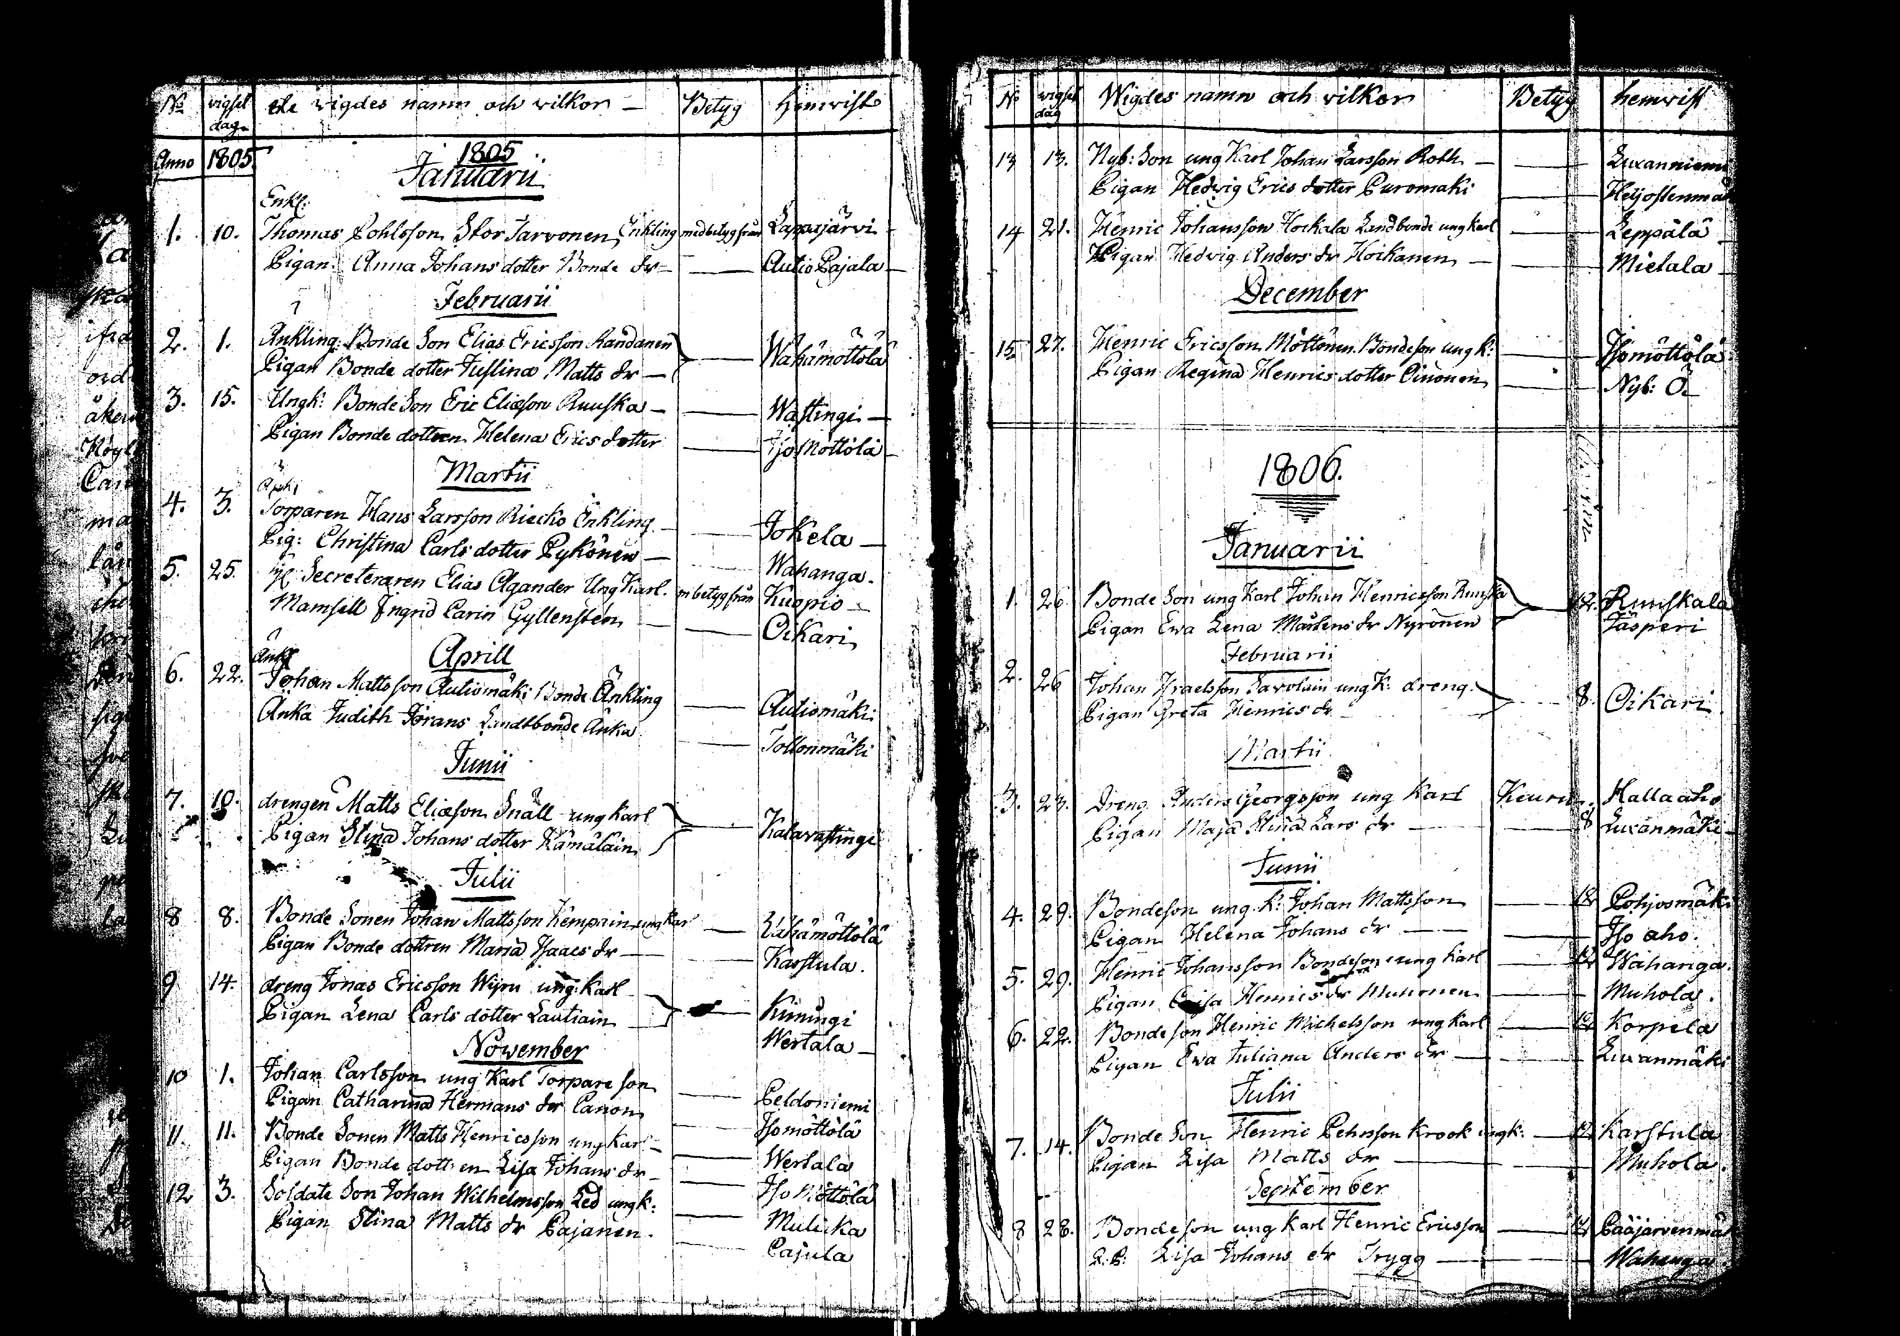 No vigsel dag. de vigdes namn och vilkor — Betyg hemvist
Anno 1805. 1805
Januarii
Enkl:
1. 10. Thomas Pohlsson Stor Tarvonen Enkling med betyg från Lappajärvi —
Pigan Anna Johans dotter Bonde dr — Autio Pajala —
Februarii
2. 1. Änkling Bonde Son Elias Ericsson Randanen
Pigan Bonde dotter Justina Matts dr — Wähämöttölä
3. 15. Ungk: Bonde Son Eric Eliæson Ruuska — Wastingi —
Pigan Bonde dottren Helena Erics dotter Iso Möttölä —
Martii
4. 3. Torparen Hans Larsson Riecko Enkling — Jokela —
Pig: Christina Carls dotter Pykönen — Wahanga.
5. 25. Secreteraren Elias Agander Ung Karl. m betyg från Kuopio —
Mamsell Ingrid Carin Gyllenstén — Oikari
Aprill
Änkl
6. 22. Johan Mattsson Autiomäki Bonde Änkling Autiomäki
Änka Judith Jörans Landtbonde Änka Tollonmäki
Junii
7. 10. drengen Matts Eliæson Snäll ung karl
Pigan Stina Johans dotter Hämäläin Kalavastingi
Julii
8 8. Bonde Sonen Johan Mattsson Kempain ung karl Wähämöttölä
Pigan Bonde dottren Maria Isaacs dr — Karstula.
9 14. dreng Jonas Ericsson Wijru ung Karl Kimingi
Pigan Lena Carls dotter Lautiain Wertala —
November
10 1. Johan Carlsson ung Karl Torpare son Peldoniemi
Pigan Catharina Hermans dr Panon Isomöttölä
11. 11. Bonde Sonen Matts Henricsson ung karl — Wertala
Pigan Bonde dottren Lisa Johans dr — Iso Möttölä
12 3. Soldate Son Johan Wilhelmsson Led ung k: Mulicka
Pigan Stina Matts dr Pajanen. Pajula
No vigsel dag Wigdes namn och vilkor Betyg hemvist
13 13. Nyb: Son ung Karl Johan Larsson Roth — Luxanniemi
Pigan Hedvig Erics dotter Puromäki
14 21. Henric Johansson Hockala Landbonde ung karl Leppälä —
Pigan Hedvig Anders dr Hoikanen — Mielala —
December
15 27. Henric Ericsson Möttönen Bondeson ung k: Isomöttölä
Pigan Regina Henrics dotter Oinonen Nyb: Ö
1806.
Januarii
1. 26 Bonde Son ung Karl Johan Henricsson Ruuska 12. Ruuskala
Pigan Ewa Lena Mårtens dr Nyrönen Jäsperi
Februarii
2. 26 Johan Israelsson Savolain ung K: dreng.
Pigan Greta Henrics dr — 8. Oikari
Martii
3. 23. Dreng Anders Georgsson ung Karl Hallaaho
Pigan Maja Stina Lars dr — 8 Luxanmäki —
Junii
4. 29. Bondeson ung k: Johan Mattsson 12 Pohjosmäki
Pigan Helena Johans dr — Iso aho.
5. 29. Henric Johansson Bondeson ung karl 12 Wahanga.
Pigan Caisa Henrics dr Mutionen Muhola.
6. 22. Bondeson Henric Michelsson ung karl 12 Korpela
Pigan Ewa Juliana Anders dr — Luxanmäki
Julii
7. 14. Bonde Son Henric Pehrsson Krook ung k. — 12 Karstula
Pigan Lisa Matts dr — Muhola.
September
8 28. Bondeson ung karl Henric Ericsson 12 Pääjärvenmä
Lisa Johans dr Trygg — Wahanga